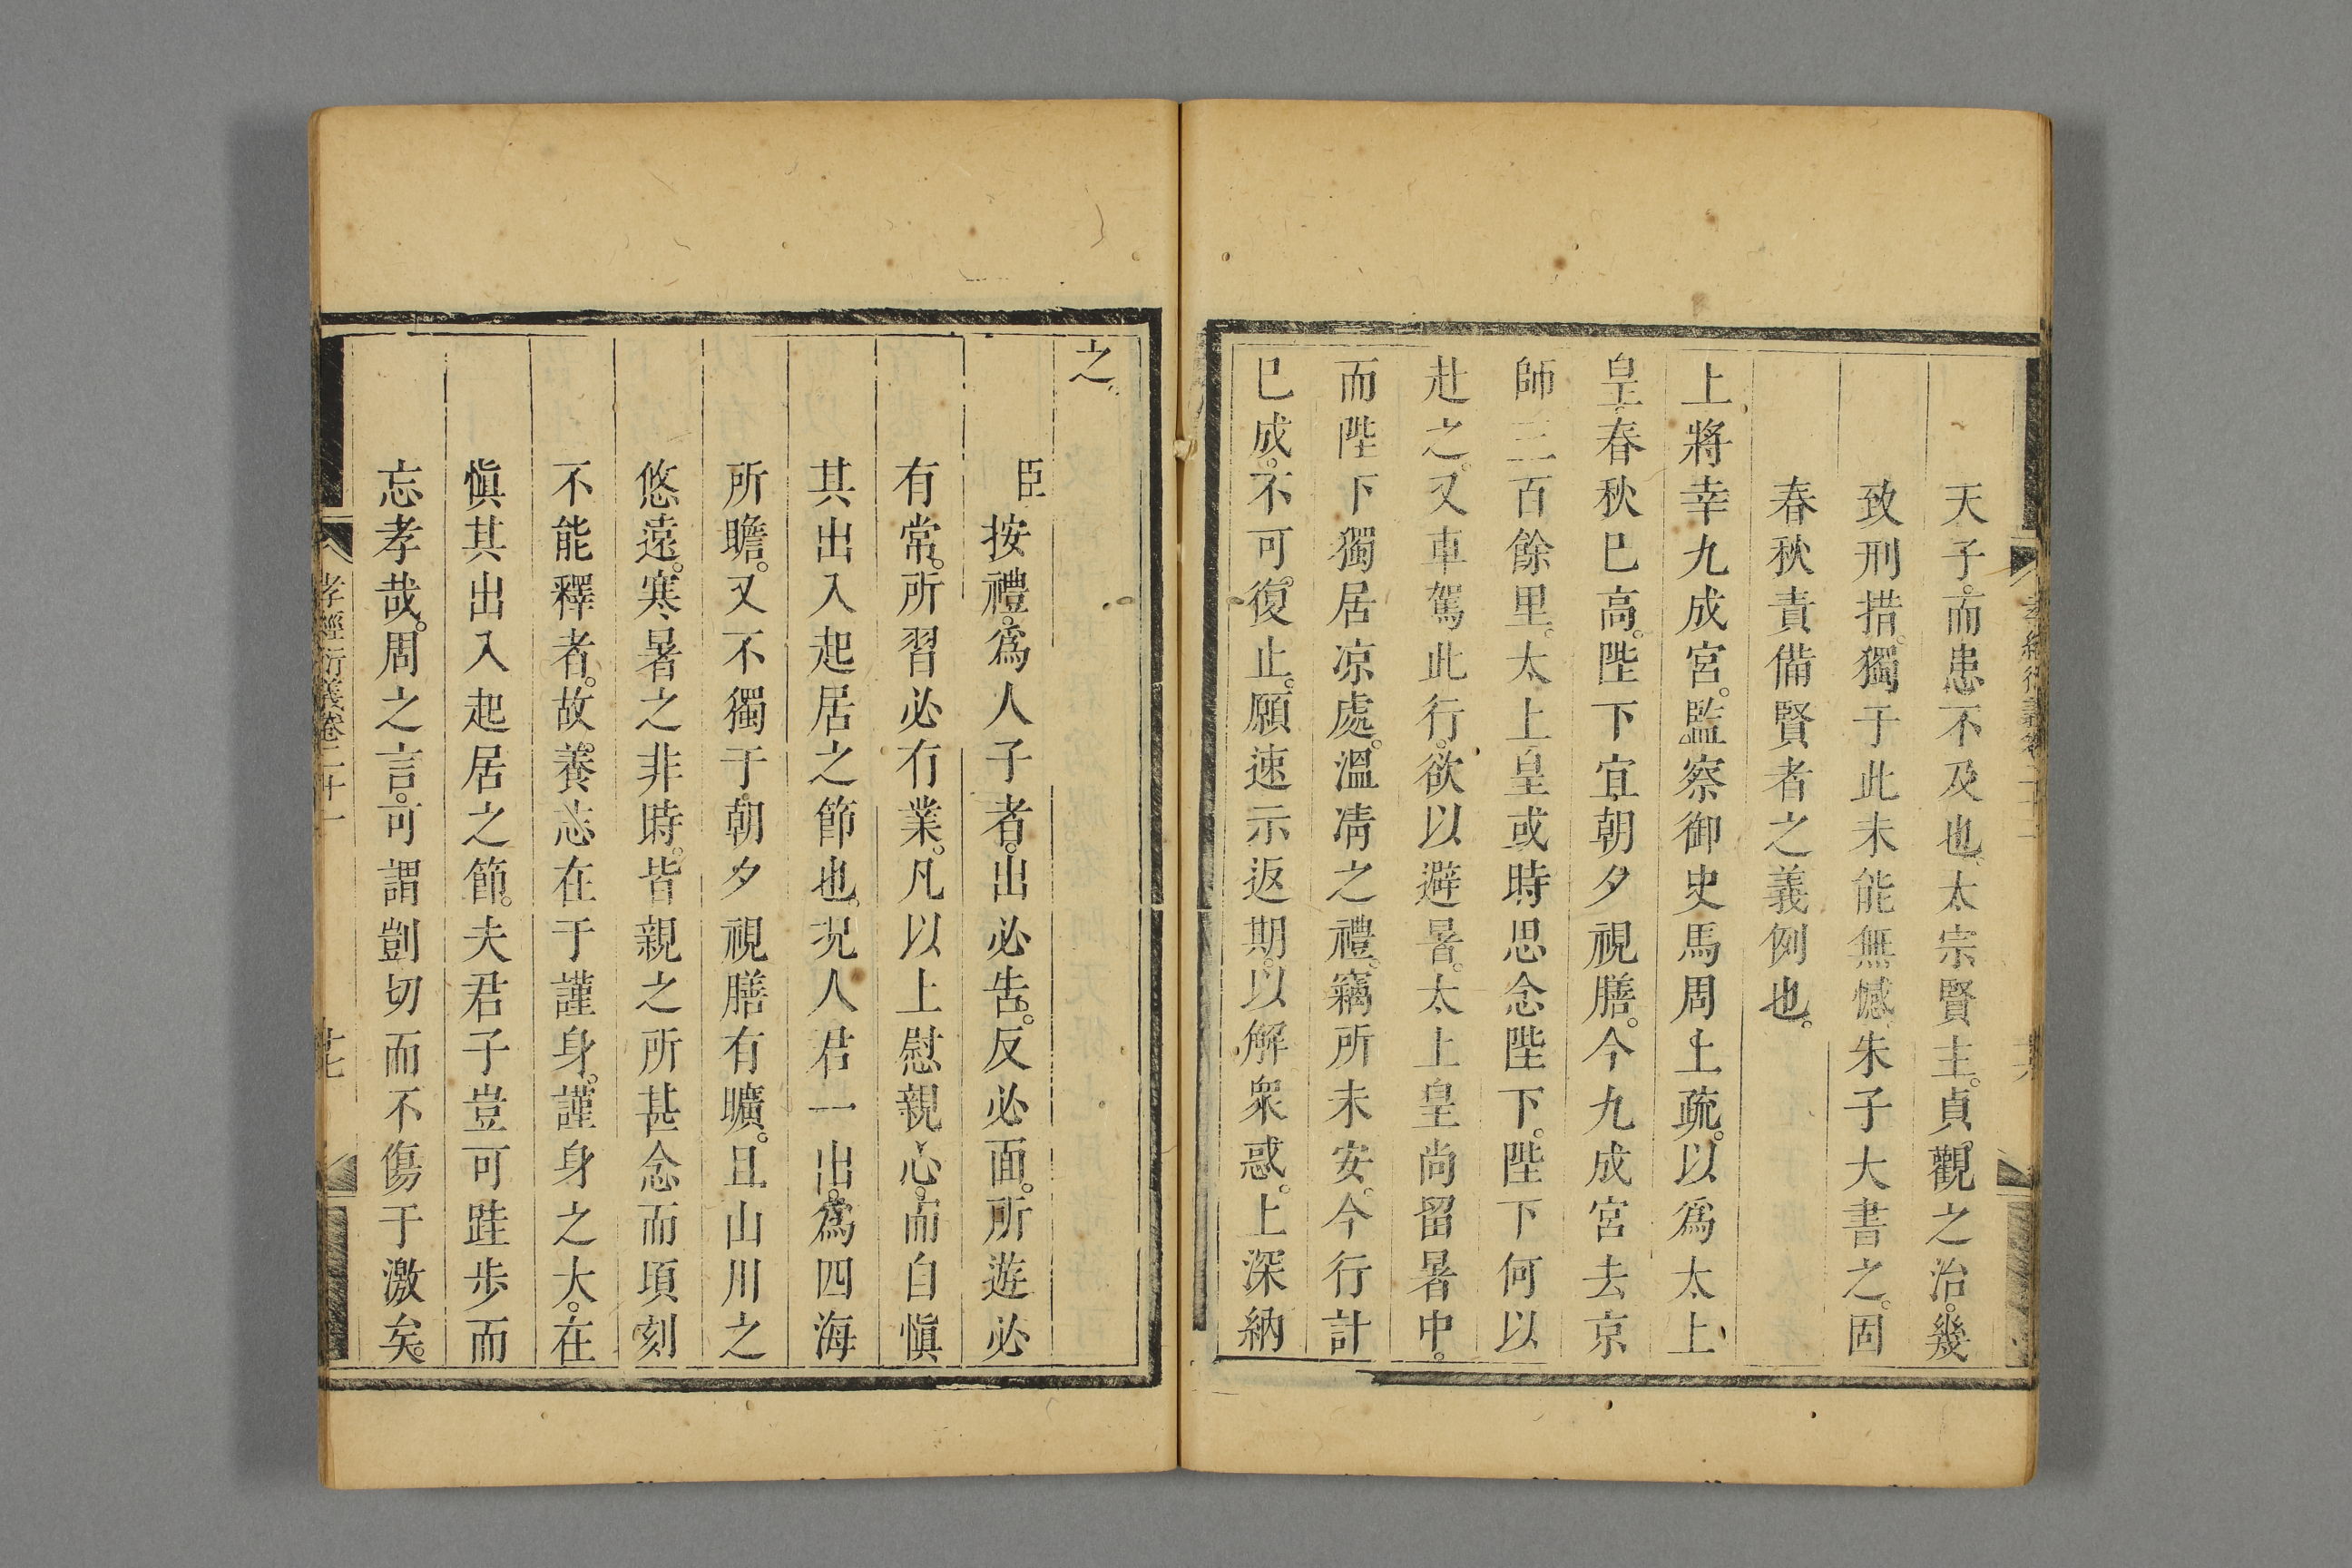 天子。而患不及也。太宗賢主。貞觀之治。幾
致刑措。獨于此未能無憾。朱子大書之。固
春秋責備賢者之義例也。
上將幸九成宮。監察御史馬周上疏。以爲太上
皇春秋已高。陛下宜朝夕視膳。今九成宮去京
師三百餘里。太上皇或時思念陛下。陛下何以
赴之。又車駕此行。欲以避暑。太上皇尚留暑中。
而陛下獨居凉處。溫凊之禮。竊所未安。今行計
已成。不可復止。願速示返期。以解衆惑。上深納
之。
臣按禮。爲人子者。出必告。反必面。所遊必
有常。所習必有業。凡以上慰親心。而自愼
其出入起居之節也。況人君一出。爲四海
所瞻。又不獨于朝夕視膳有曠。且山川之
悠遠。寒暑之非時。皆親之所甚念而頃刻
不能釋者。故養志在于謹身。謹身之大。在
愼其出入起居之節。夫君子豈可跬步而
忘孝哉。周之言。可謂剴切而不傷于激矣。
孝經衍義卷二十一